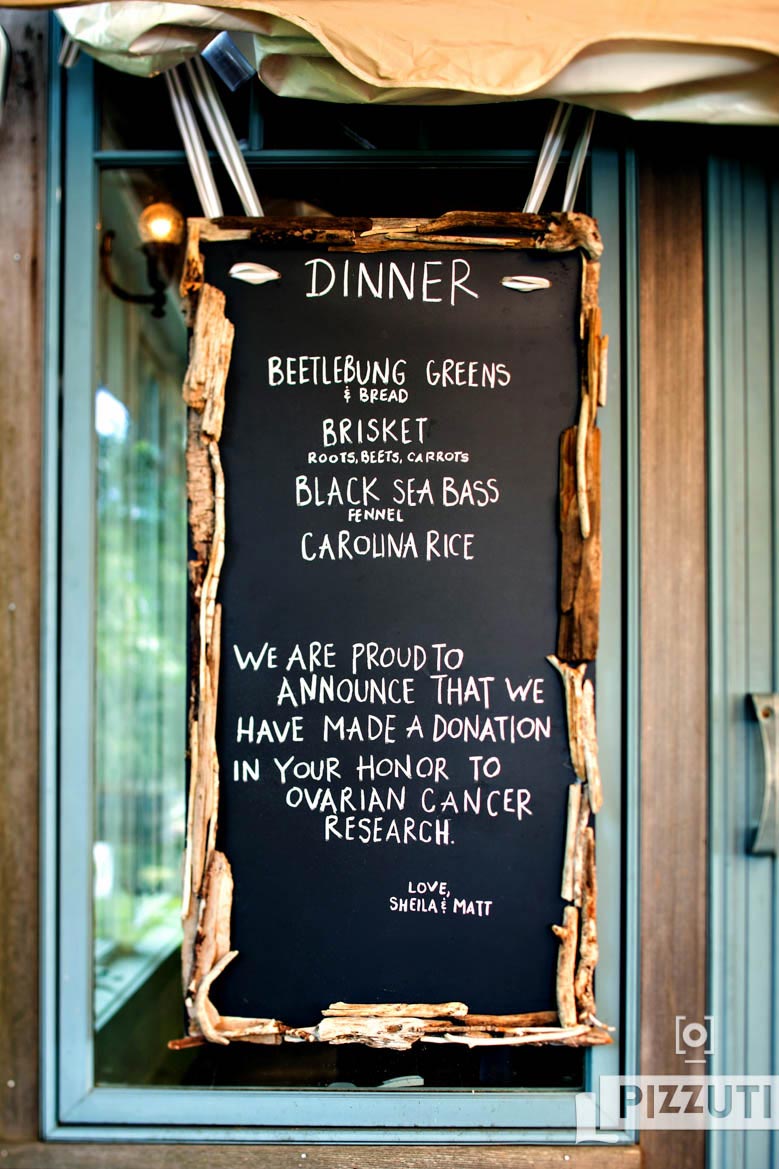 DINNER
BEETLEBUNG GREENS
& BREAD
BRISKET
ROOTS, BEETS, CARROTS
BLACK SEA BASS
FENNEL
CAROLINA RICE
WE ARE PROUD TO
ANNOUNCE THAT WE
HAVE MADE A DONATION
IN YOUR HONOR TO
OVARIAN CANCER
RESEARCH.
LOVE,
SHEILA & MATT
PIZZUTI